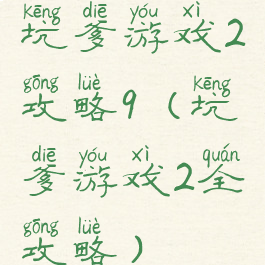 kēng diē yóu xì
坑爹游戏2
gōng lüè kēng
攻略9（坑
diē yóu xì quán
爹游戏2全
gōng lüè
攻略）